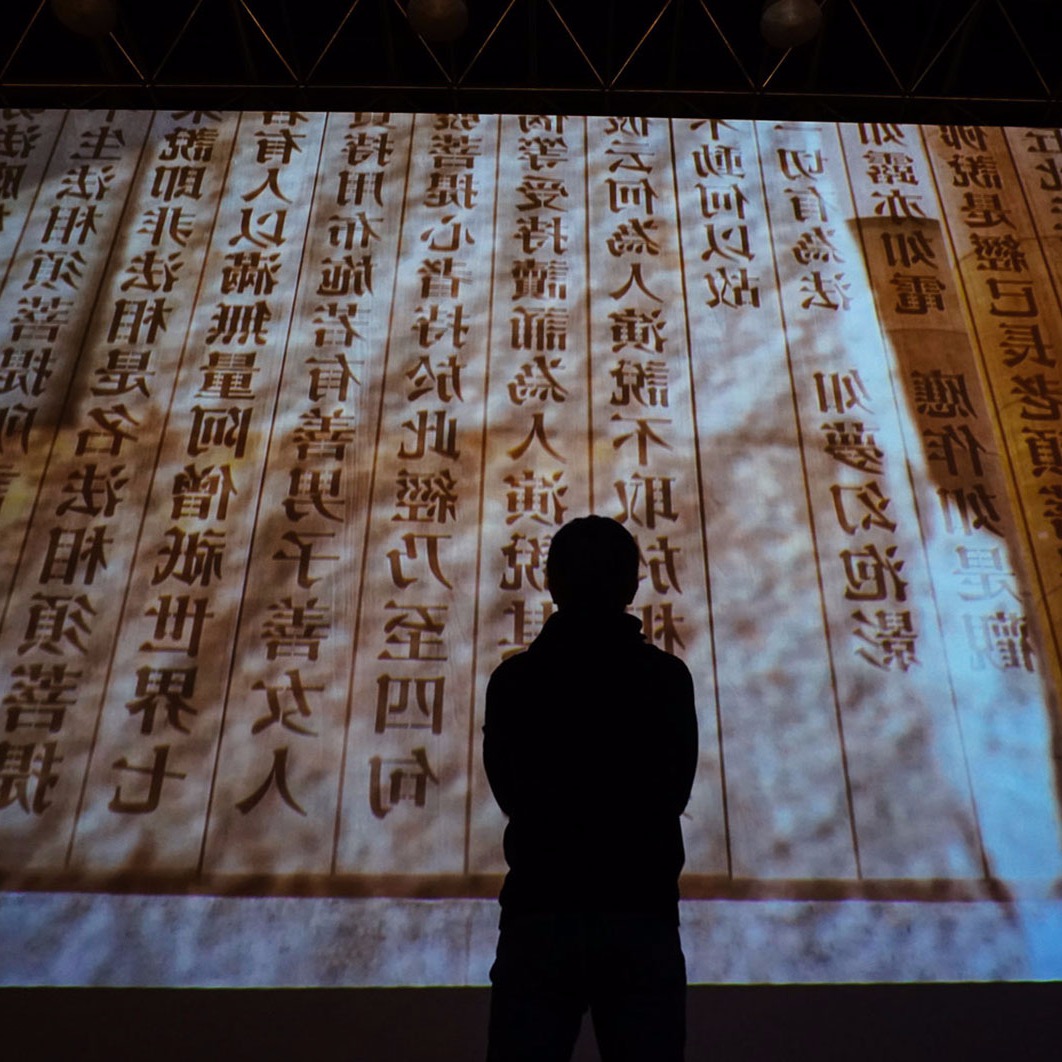 法應
生法相須菩提所
來說即非法相是名法相須菩提
若有人以滿無量阿僧祇世界七
寶持用布施若有善男子善女人
發菩提心者持於此經乃至四句
偈等受持讀誦為人演說其
彼云何為人演說不取於相
不動何以故
一切有為法 如夢幻泡影
如露亦如電 應作如是觀
佛說是經已長老須菩